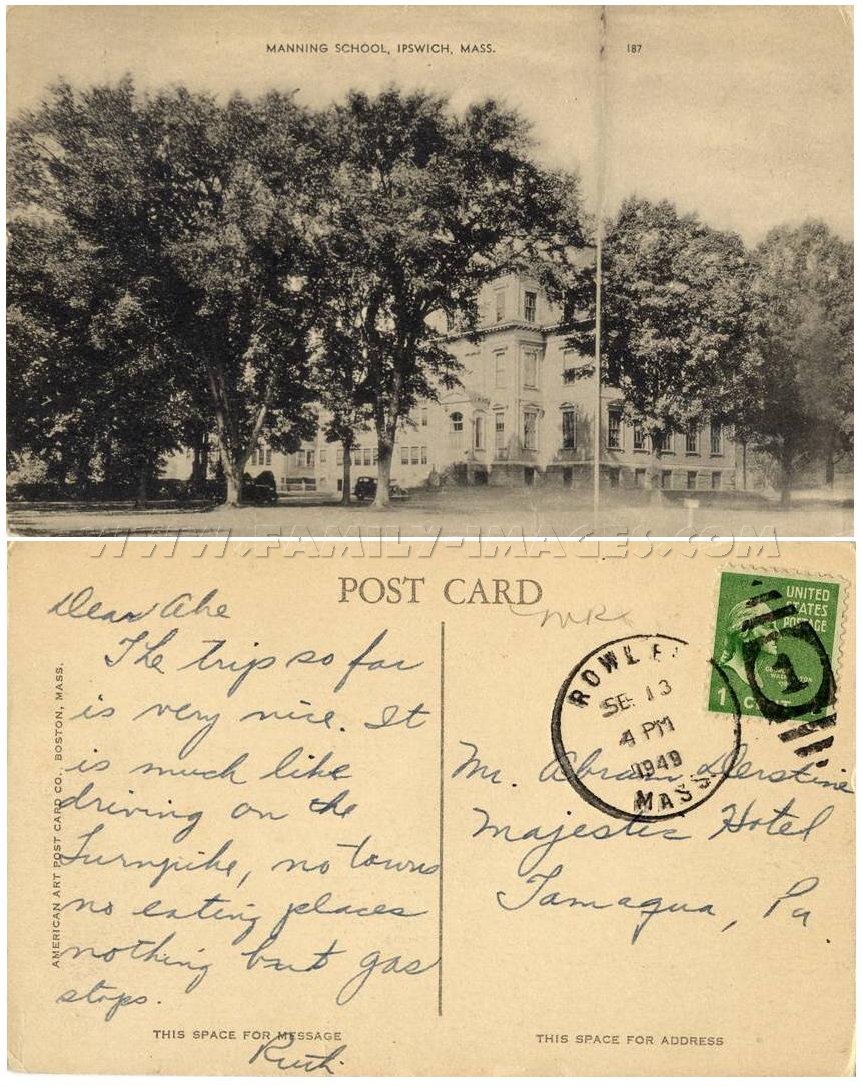 MANNING SCHOOL, IPSWICH, MASS.
187
WWW.FAMILY-IMAGES.COM
POST CARD
Dear Abe
The trip so far
is very nice. It
is much like
driving on the
Turnpike, no towns
no eating places
nothing but gas
stops.
Ruth
THIS SPACE FOR MESSAGE
AMERICAN ART POST CARD CO., BOSTON, MASS.
ROWLEY
SEP 13
4 PM
1949
MASS
UNITED
STATES
POSTAGE
GEORGE
WASHINGTON
1 CENT
1
Mr. Abram Derstine
Majestic Hotel
Tamaqua, Pa.
THIS SPACE FOR ADDRESS